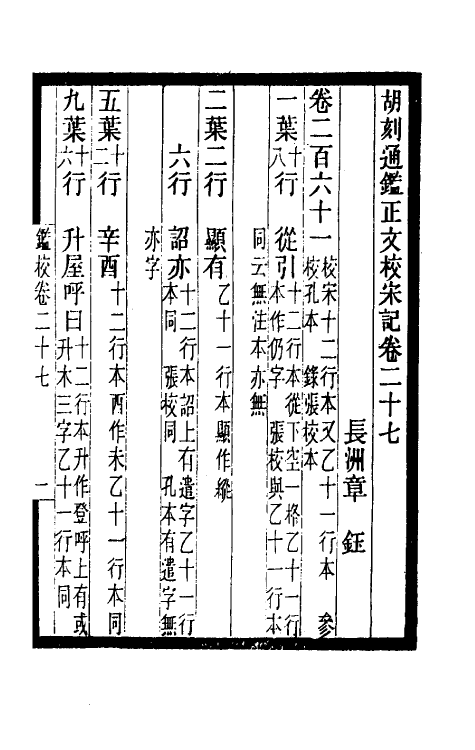 胡刻通鑑正文校宋記卷二十七
長洲章 鈺
卷二百六十一 校宋十二行本又乙十一行本 參
校孔本 錄張校本
一葉十八行 從引十二行本從下空一格乙十一行
本作仍字 張校與乙十一行本
同云無注本亦無
二葉二行 顯有乙十一行本顯作縱
六行 詔亦十二行本詔上有遣字乙十一行
本同 張校同 孔本有遣字無
亦字
五葉十二行 辛酉十二行本酉作未乙十一行本同
九葉十六行 升屋呼曰十二行本升作登呼上有或
升木三字乙十一行本同
鑑校卷二十七 一